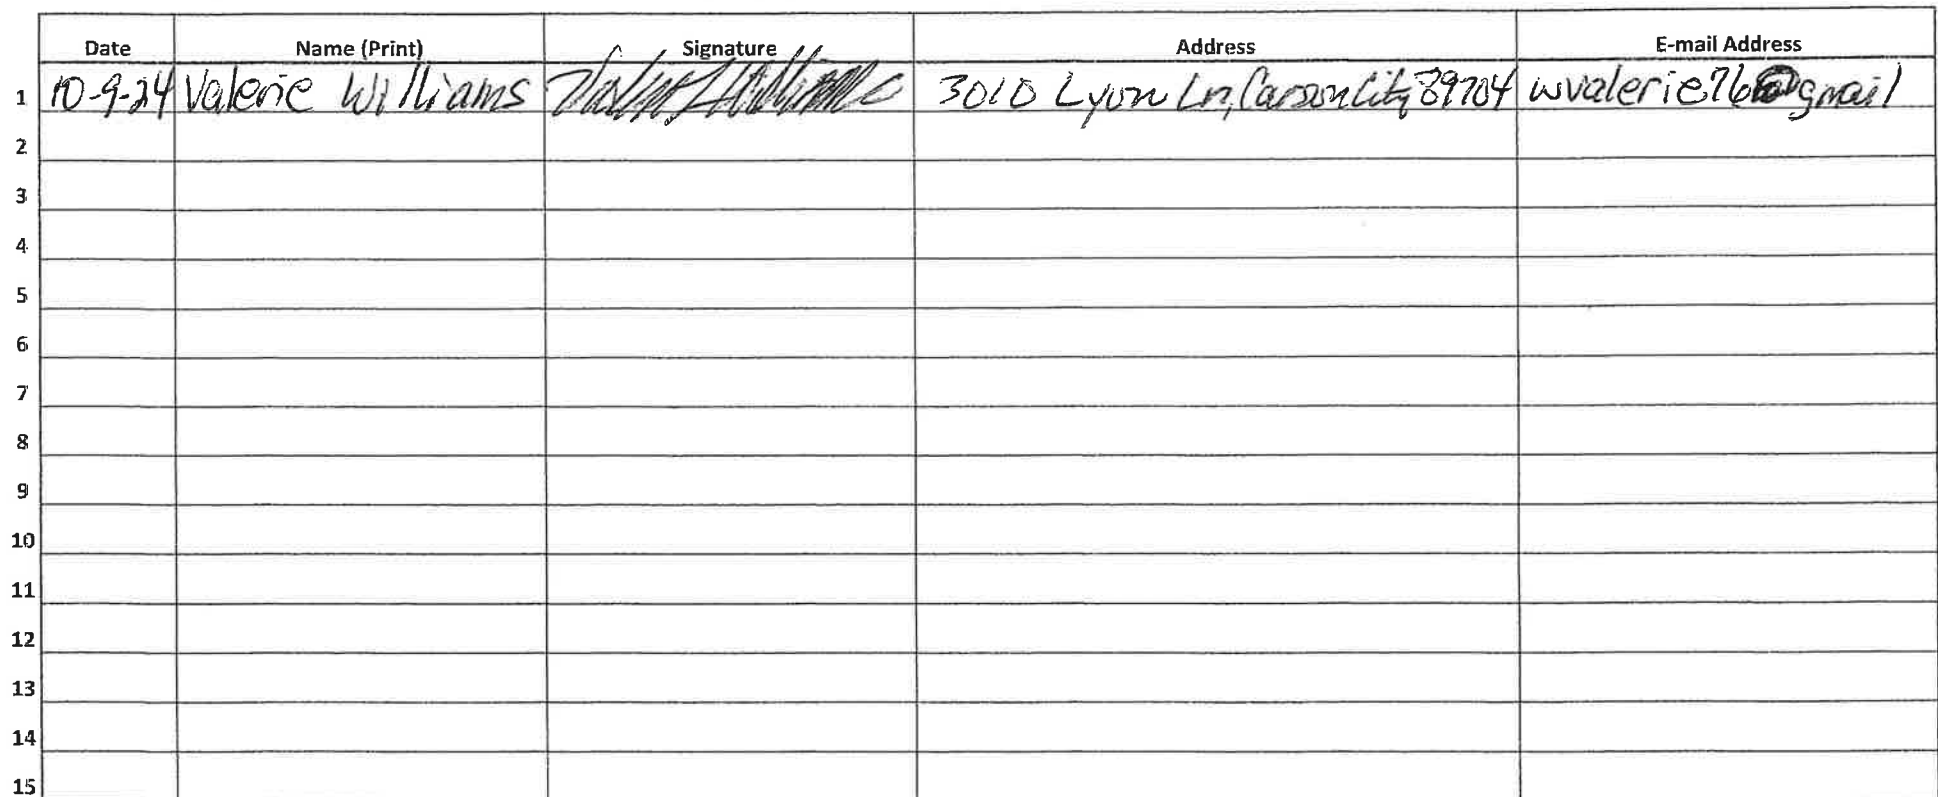 Date Name (Print) Signature Address E-mail Address
1 10-9-24 Valerie Williams 3010 Lyon Ln, Carson City 89704 wvalerie76@gmail
2
3
4
5
6
7
8
9
10
11
12
13
14
15